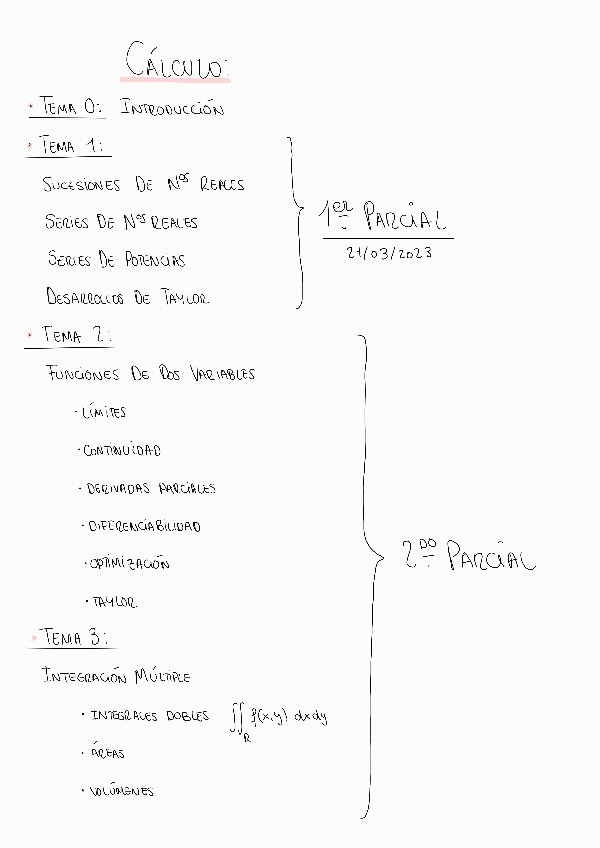 CÁLCULO:
• TEMA 0: INTRODUCCIÓN
• TEMA 1:
SUCESIONES DE Nos REALES
SERIES DE Nos REALES
SERIES DE POTENCIAS
DESARROLLOS DE TAYLOR
1er PARCIAL
21/03/2023
• TEMA 2:
FUNCIONES DE DOS VARIABLES
· LÍMITES
· CONTINUIDAD
· DERIVADAS PARCIALES
· DIFERENCIABILIDAD
· OPTIMIZACIÓN
· TAYLOR
2DO PARCIAL
• TEMA 3:
INTEGRACIÓN MÚLTIPLE
· INTEGRALES DOBLES ∬R f(x,y) dxdy
· ÁREAS
· VOLÚMENES